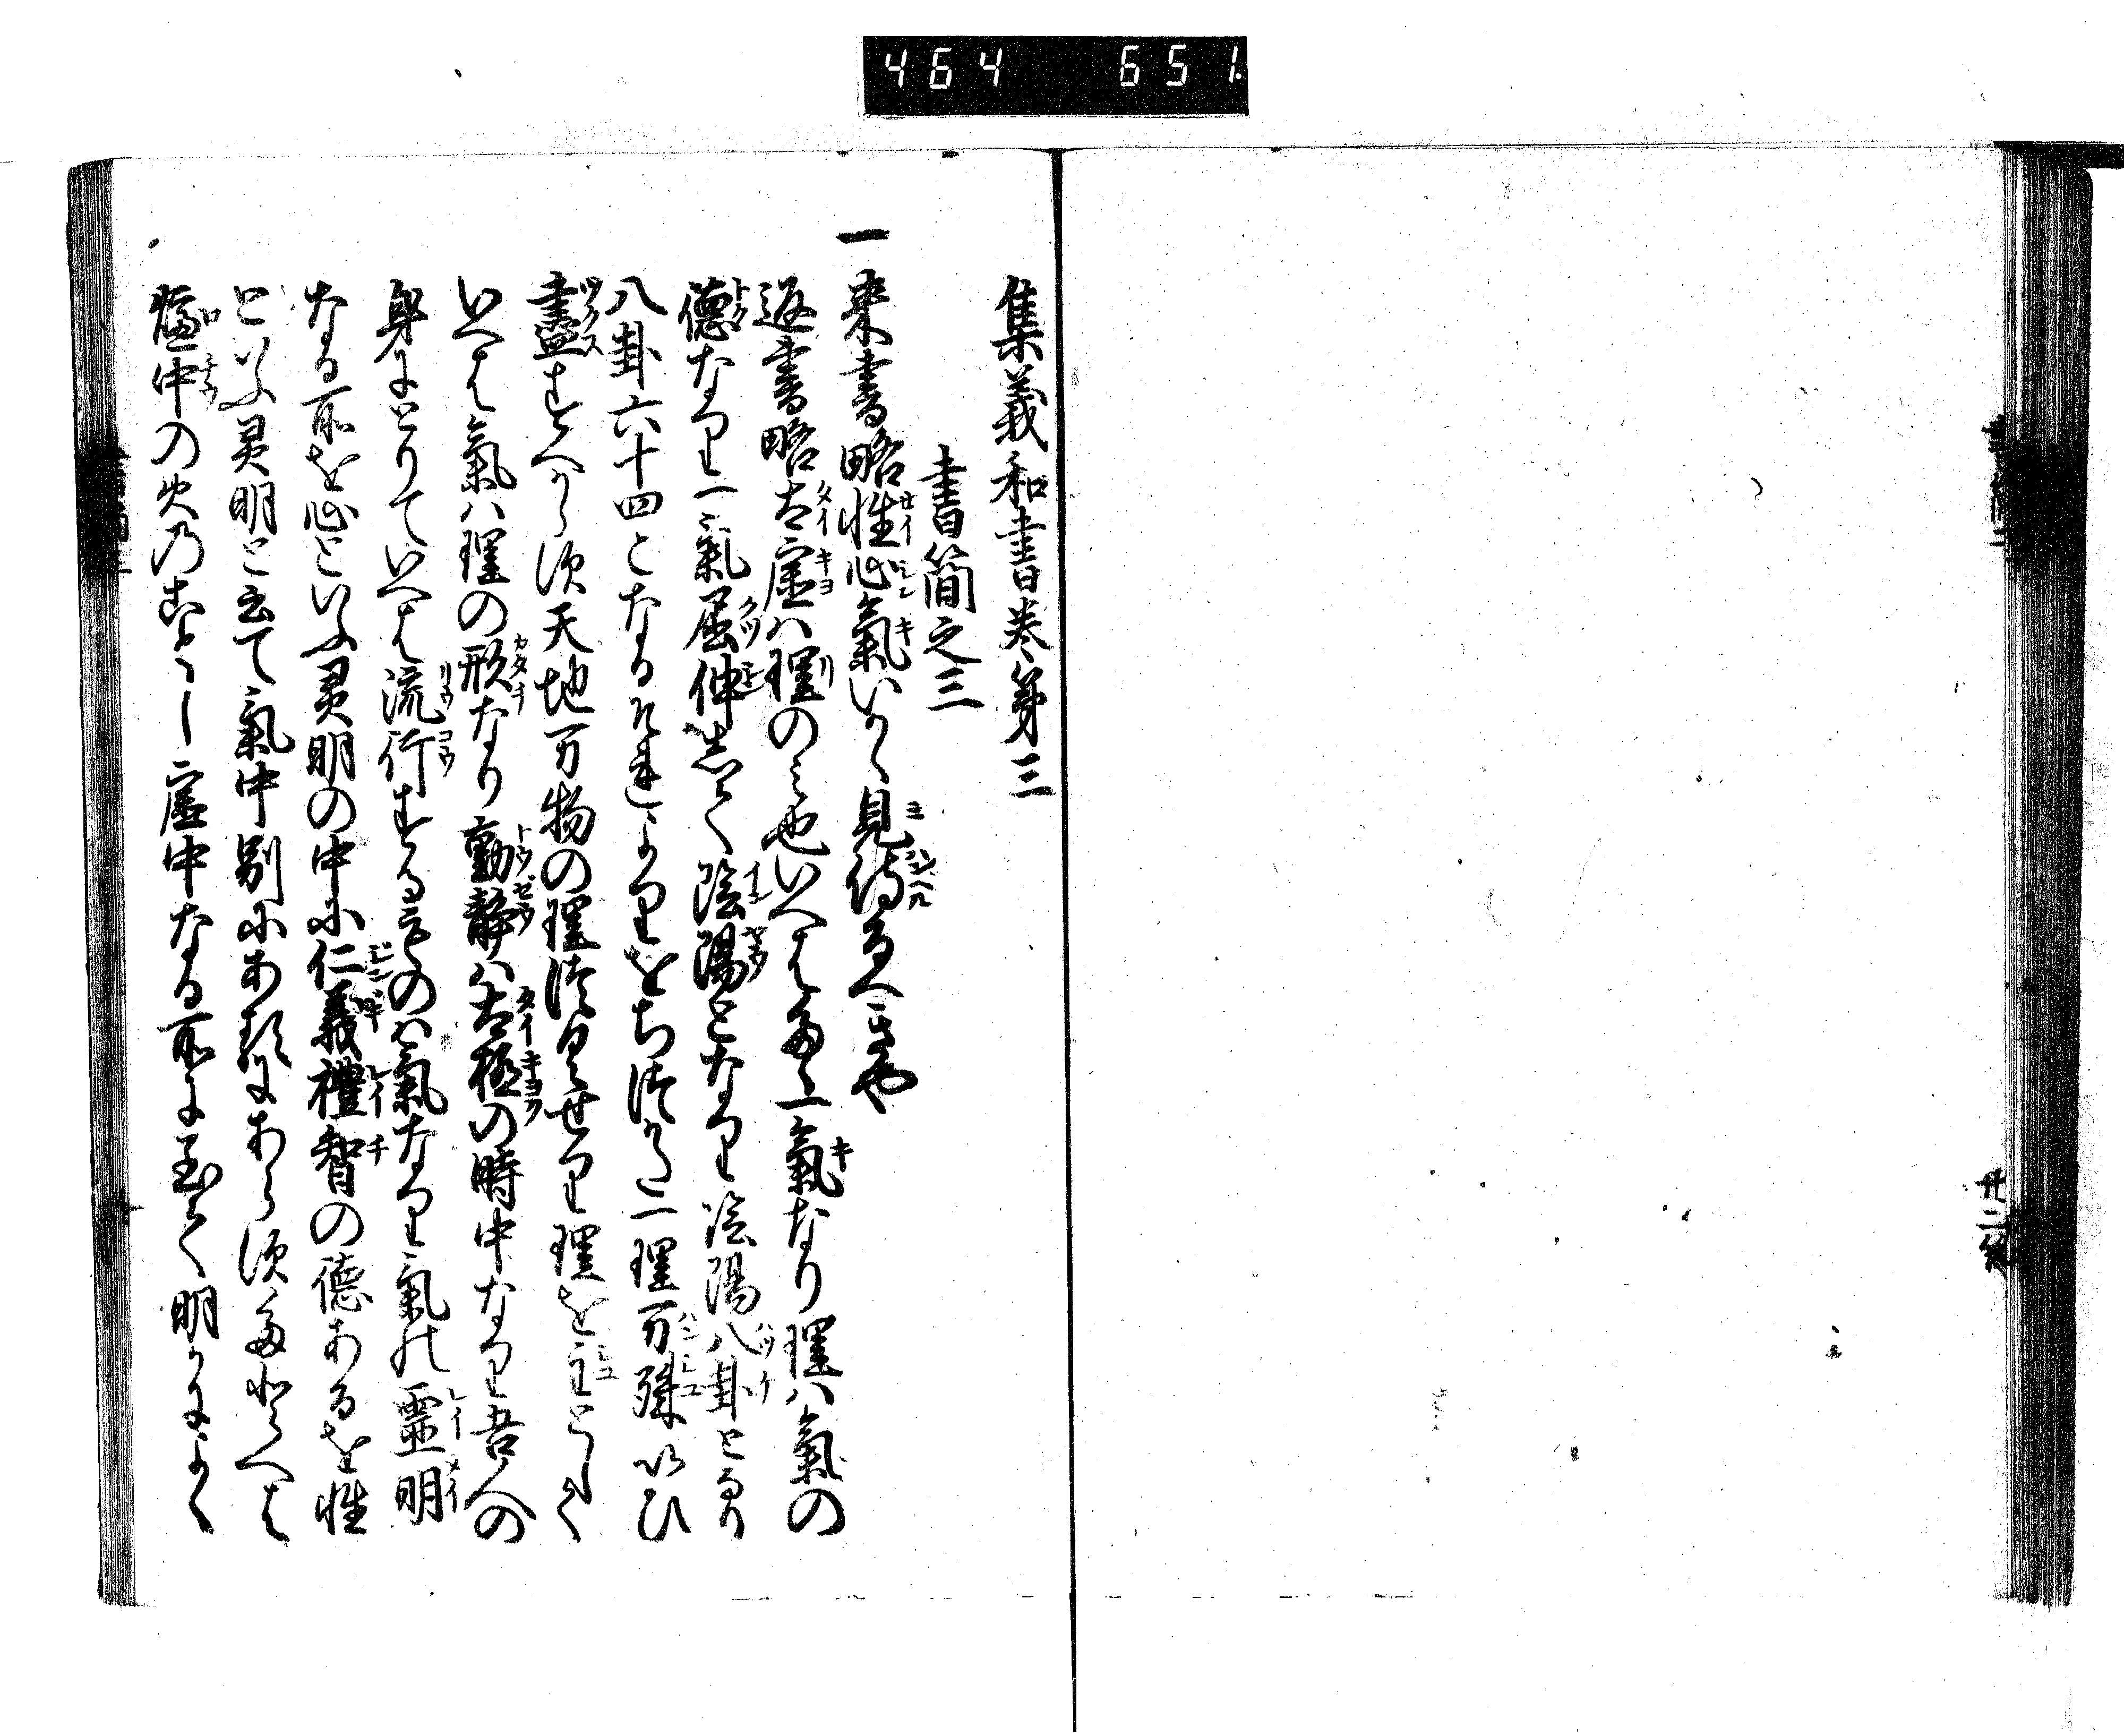 464 651
集義和書巻第三
書簡之三
一 来書略性心氣いかゝ見侍るへきや
返書略太虚ハ理のミ也いへはたゝ一氣なり理ハ氣の
徳なり一氣屈伸して陰陽となり陰陽八卦となり
八卦六十四となるそれよりをちつかた一理万殊いひ
盡すへからす天地万物の理つくせり理を主として
いへは氣ハ理の形なり動静ハ太極の時中なり吾人の
身にとりていへは流行するものハ氣なり氣の霊明
なる所を心といふ灵明の中に仁義禮智の徳あるを性
といふ灵明と云て氣中別にあるにあらすたとへは
爐中の火のことし虚中なる所に至て明かによく